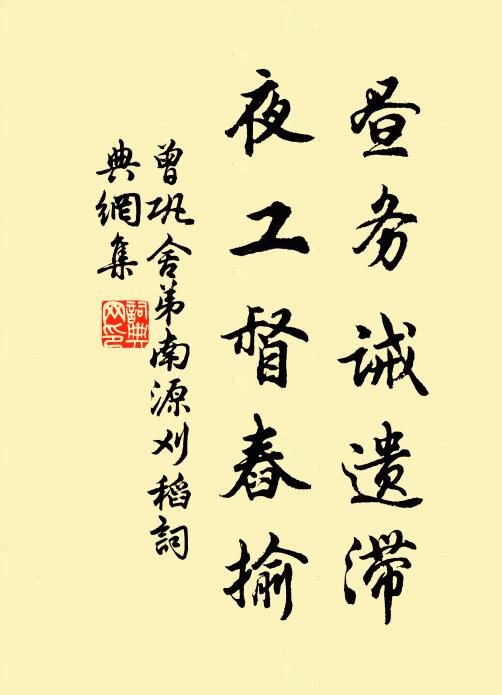 昼务诫遗滞
夜工督舂揄
曾巩舍弟南源刈稻詞
典網集
詞典网印